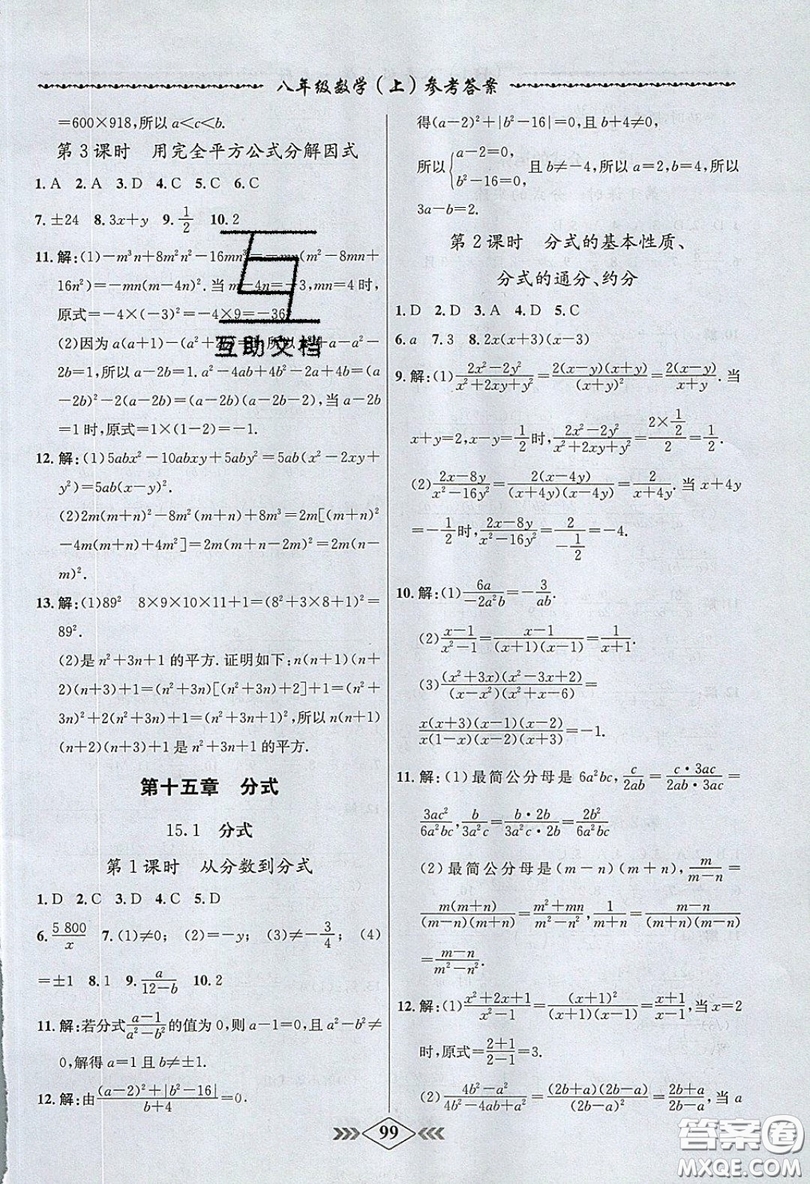 八年级数学(上)参考答案
=600×918,所以a<c<b.
第3课时 用完全平方公式分解因式
1. A 2. A 3. D 4. C 5. C 6. C
7. ±24 8. 3x+y 9. 1/2 10. 2
11. 解:(1)-m³n+8m²n²-16mn³=-mn(m²-8mn+
16n²)=-mn(m-4n)². 当m-4n=-3,mn=4时,
原式=-4×(-3)²=-4×9=-36.
(2)因为a(a+1)-(a²+2b)=1,所以a²+a-a²-
2b=1,所以a-2b=1. a²-4ab+4b²-2a+4b=(a-
2b)²-2(a-2b)=(a-2b)(a-2b-2),当a-2b
=1时,原式=1×(1-2)=-1.
12. 解:(1)5abx²-10abxy+5aby²=5ab(x²-2xy+
y²)=5ab(x-y)².
(2)2m(m+n)²-8m²(m+n)+8m³=2m[(m+n)²
-4m(m+n)+4m²]=2m(m+n-2m)²=2m(n-
m)².
13. 解:(1)89² 8×9×10×11+1=(8²+3×8+1)²=
89².
(2)是n²+3n+1的平方. 证明如下:n(n+1)(n+
2)(n+3)+1=(n²+3n)[(n²+3n)+2]+1=(n²+
3n)²+2(n²+3n)+1=(n²+3n+1)²,所以n(n+1)
(n+2)(n+3)+1是n²+3n+1的平方.
第十五章 分式
15.1 分式
第1课时 从分数到分式
1. D 2. C 3. D 4. C 5. D
6. 5 800/x 7. (1)≠0; (2)=-y; (3)≠-3/4; (4)
=±1 8. 1 9. a/(12-b) 10. 2
11. 解:若分式(a-1)/(a²-b²)的值为0,则a-1=0且a²-b²≠
0,解得a=1且b≠±1.
12. 解:由((a-2)²+|b²-16|)/(b+4)=0.
得(a-2)²+|b²-16|=0,且b+4≠0,
所以{a-2=0, b²-16=0, 且b≠-4,所以a=2,b=4,所以
3a-b=2.
第2课时 分式的基本性质、
分式的通分、约分
1. D 2. D 3. A 4. D 5. C
6. a 7. 3 8. 2x(x+3)(x-3)
9. 解:(1)(2x²-2y²)/(x²+2xy+y²)=2(x-y)(x+y)/(x+y)²=2(x-y)/(x+y). 当
x+y=2,x-y=1/2时,(2x²-2y²)/(x²+2xy+y²)=(2×1/2)/2=1/2.
(2)(2x-8y)/(x²-16y²)=2(x-4y)/((x+4y)(x-4y))=2/(x+4y). 当x+4y
=-1/2时,(2x-8y)/(x²-16y²)=2/(-1/2)=-4.
10. 解:(1)6a/(-2a²b)=-3/(ab).
(2)(x-1)/(x²-1)=(x-1)/((x+1)(x-1))=1/(x+1).
(3)(x²+3x)(x²-3x+2)/((x-x²)(x²+x-6))=
x(x+3)(x-1)(x-2)/(x(1-x)(x-2)(x+3))=-1.
11. 解:(1)最简公分母是6a²bc,c/(2ab)=(c·3ac)/(2ab·3ac)=
3ac²/(6a²bc),b/(3a²c)=(b·2b)/(3a²c·2b)=2b²/(6a²bc).
(2)最简公分母是(m-n)(m+n),m/(m-n)=
m(m+n)/((m-n)(m+n))=(m²+mn)/(m²-n²),1/(m+n)=(m-n)/((m-n)(m+n))=
(m-n)/(m²-n²).
12. 解:(1)(x²+2x+1)/(x²-1)=(x+1)²/((x+1)(x-1))=(x+1)/(x-1),当x=2
时,原式=(2+1)/(2-1)=3.
(2)(4b²-a²)/(4b²-4ab+a²)=(2b+a)(2b-a)/(2b-a)²=(2b+a)/(2b-a),当a
99
互助文档
答案圈
MXQE.COM